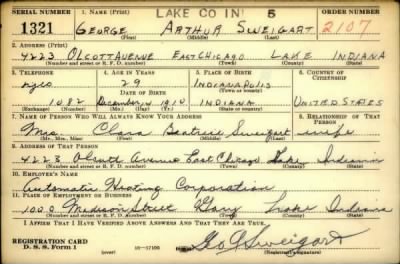 SERIAL NUMBER
1. NAME (Print)
LAKE CO IND 5
ORDER NUMBER
1321
GEORGE ARTHUR SWEIGART
2107
(First) (Middle) (Last)
2. ADDRESS (Print)
4223 OLCOTT AVENUE EAST CHICAGO LAKE INDIANA
(Number and street or R. F. D. number) (Town) (County) (State)
3. TELEPHONE
4. AGE IN YEARS
5. PLACE OF BIRTH
6. COUNTRY OF CITIZENSHIP
29
INDIANAPOLIS
DATE OF BIRTH
1082 December 4 1910 INDIANA UNITED STATES
(Exchange) (Number) (Mo.) (Day) (Yr.) (State or country)
7. NAME OF PERSON WHO WILL ALWAYS KNOW YOUR ADDRESS
8. RELATIONSHIP OF THAT PERSON
Mrs. Clara Beatrice Sweigart wife
(Mr., Mrs., Miss) (First) (Middle) (Last)
9. ADDRESS OF THAT PERSON
4223 Olcott Avenue East Chicago Lake Indiana
(Number and street or R. F. D. number) (Town) (County) (State)
10. EMPLOYER'S NAME
Automatic Heating Corporation
11. PLACE OF EMPLOYMENT OR BUSINESS
1000 Madison Street Gary Lake Indiana
(Number and street or R. F. D. number) (Town) (County) (State)
I AFFIRM THAT I HAVE VERIFIED ABOVE ANSWERS AND THAT THEY ARE TRUE.
REGISTRATION CARD
D. S. S. Form 1
16-17106
Geo A Sweigart
(Registrant's signature)